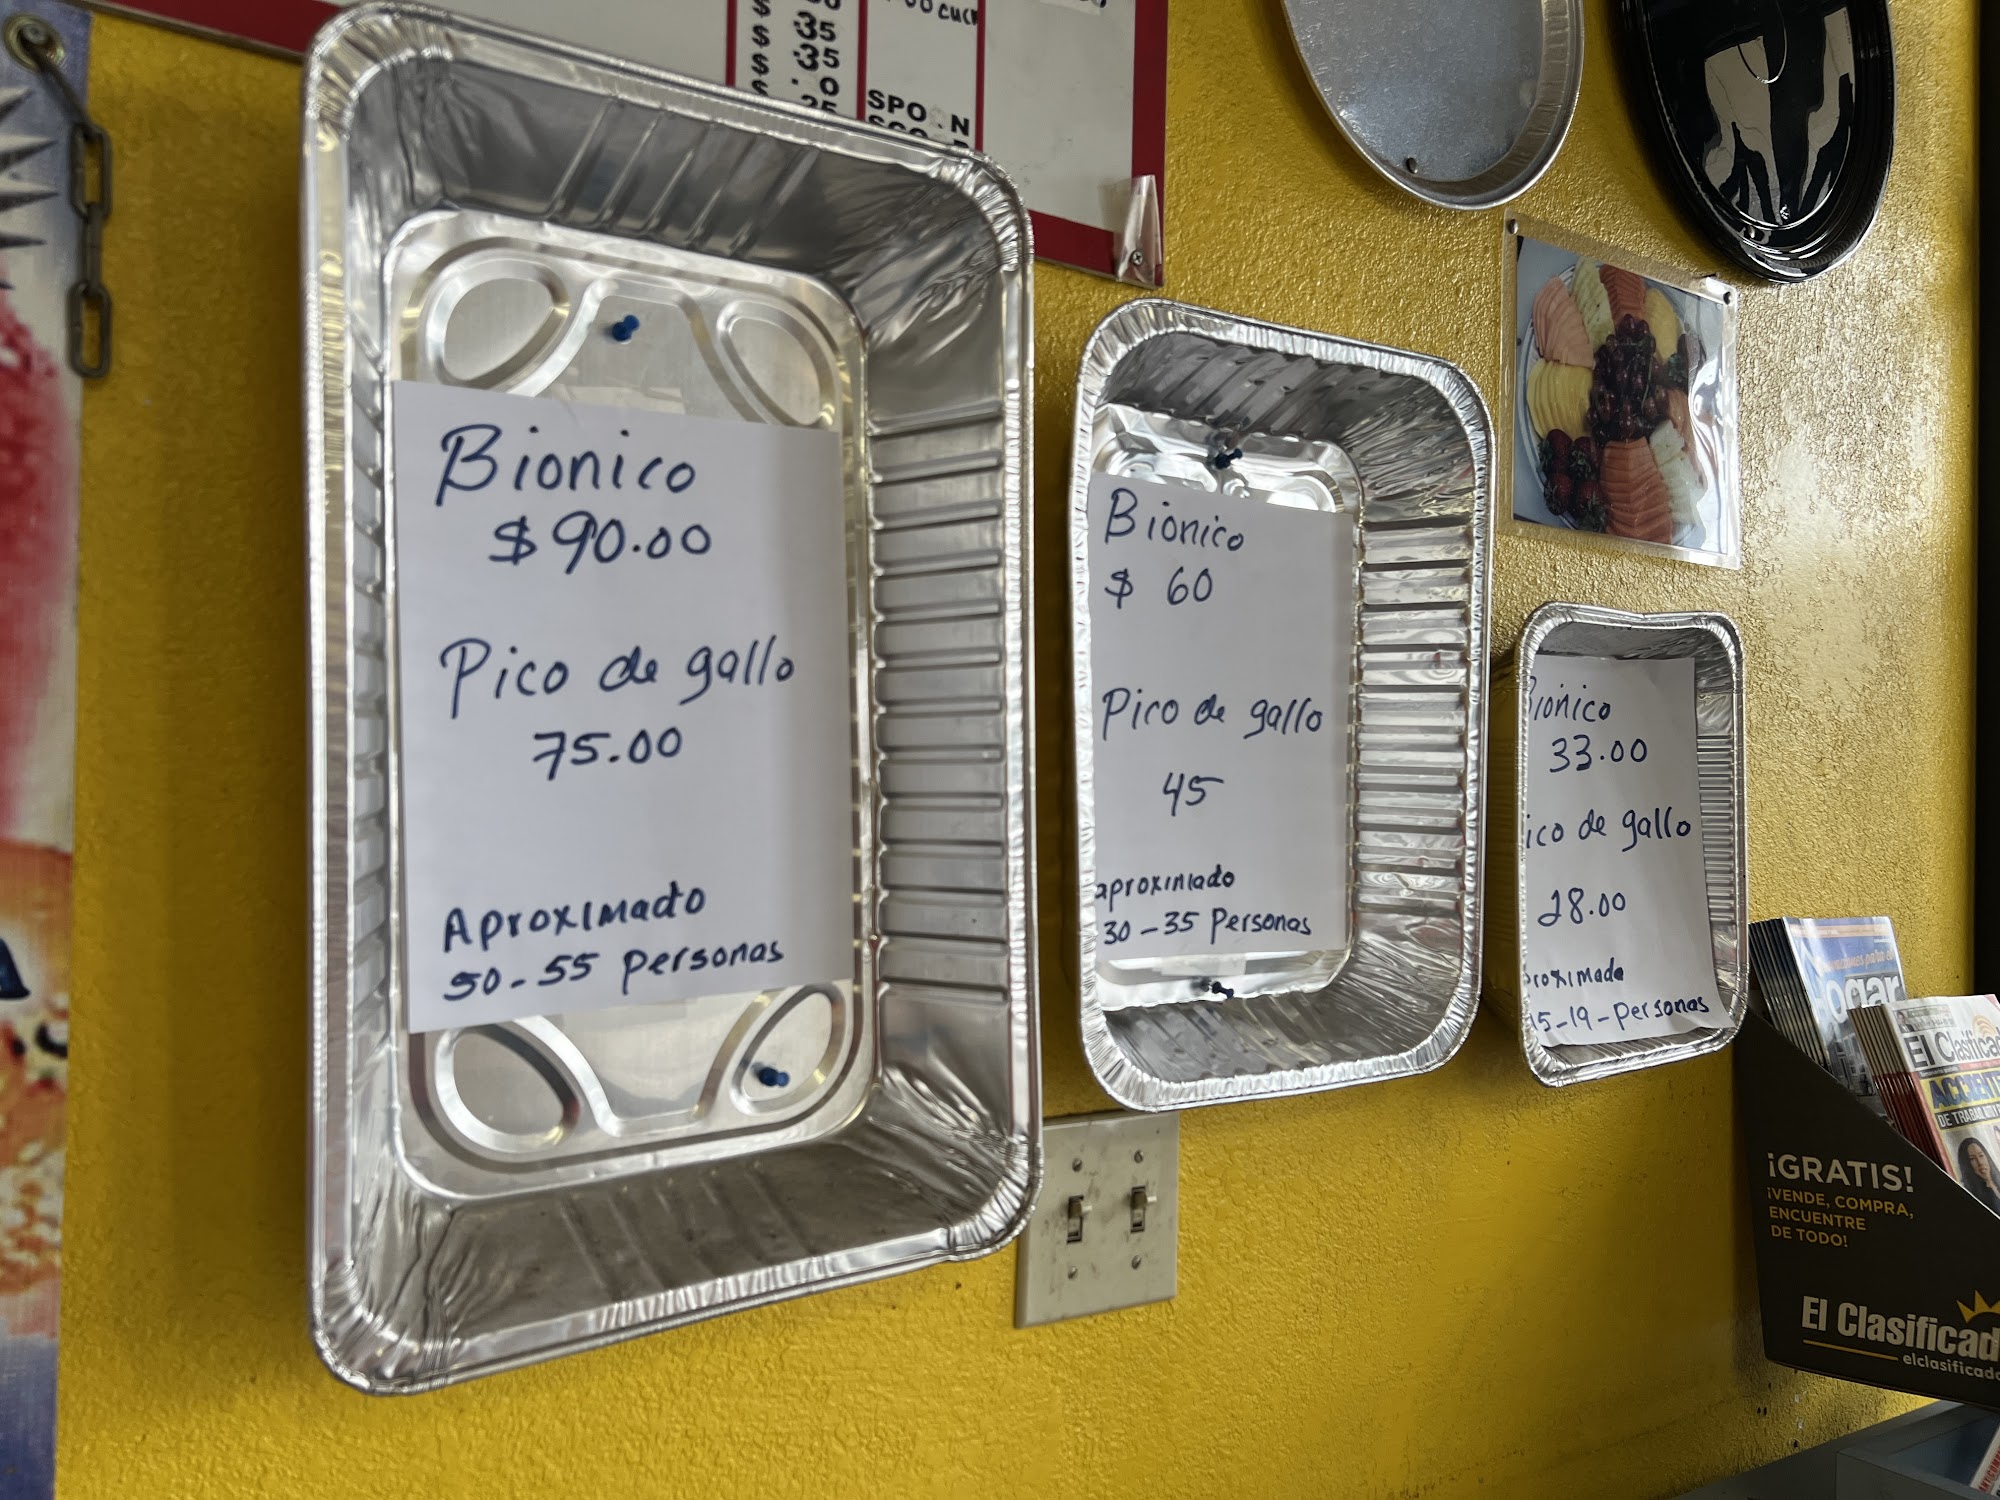 35
35
Bionico
$90.00
Pico de gallo
75.00
Aproximado
50-55 personas
Bionico
$ 60
Pico de gallo
45
aproximado
30-35 Personas
ionico
33.00
ico de gallo
28.00
proximada
15-19-Personas
ogar
El Clasificado
DE TRABAJO
¡GRATIS!
¡VENDE, COMPRA,
ENCUENTRE
DE TODO!
El Clasificad
elclasificado